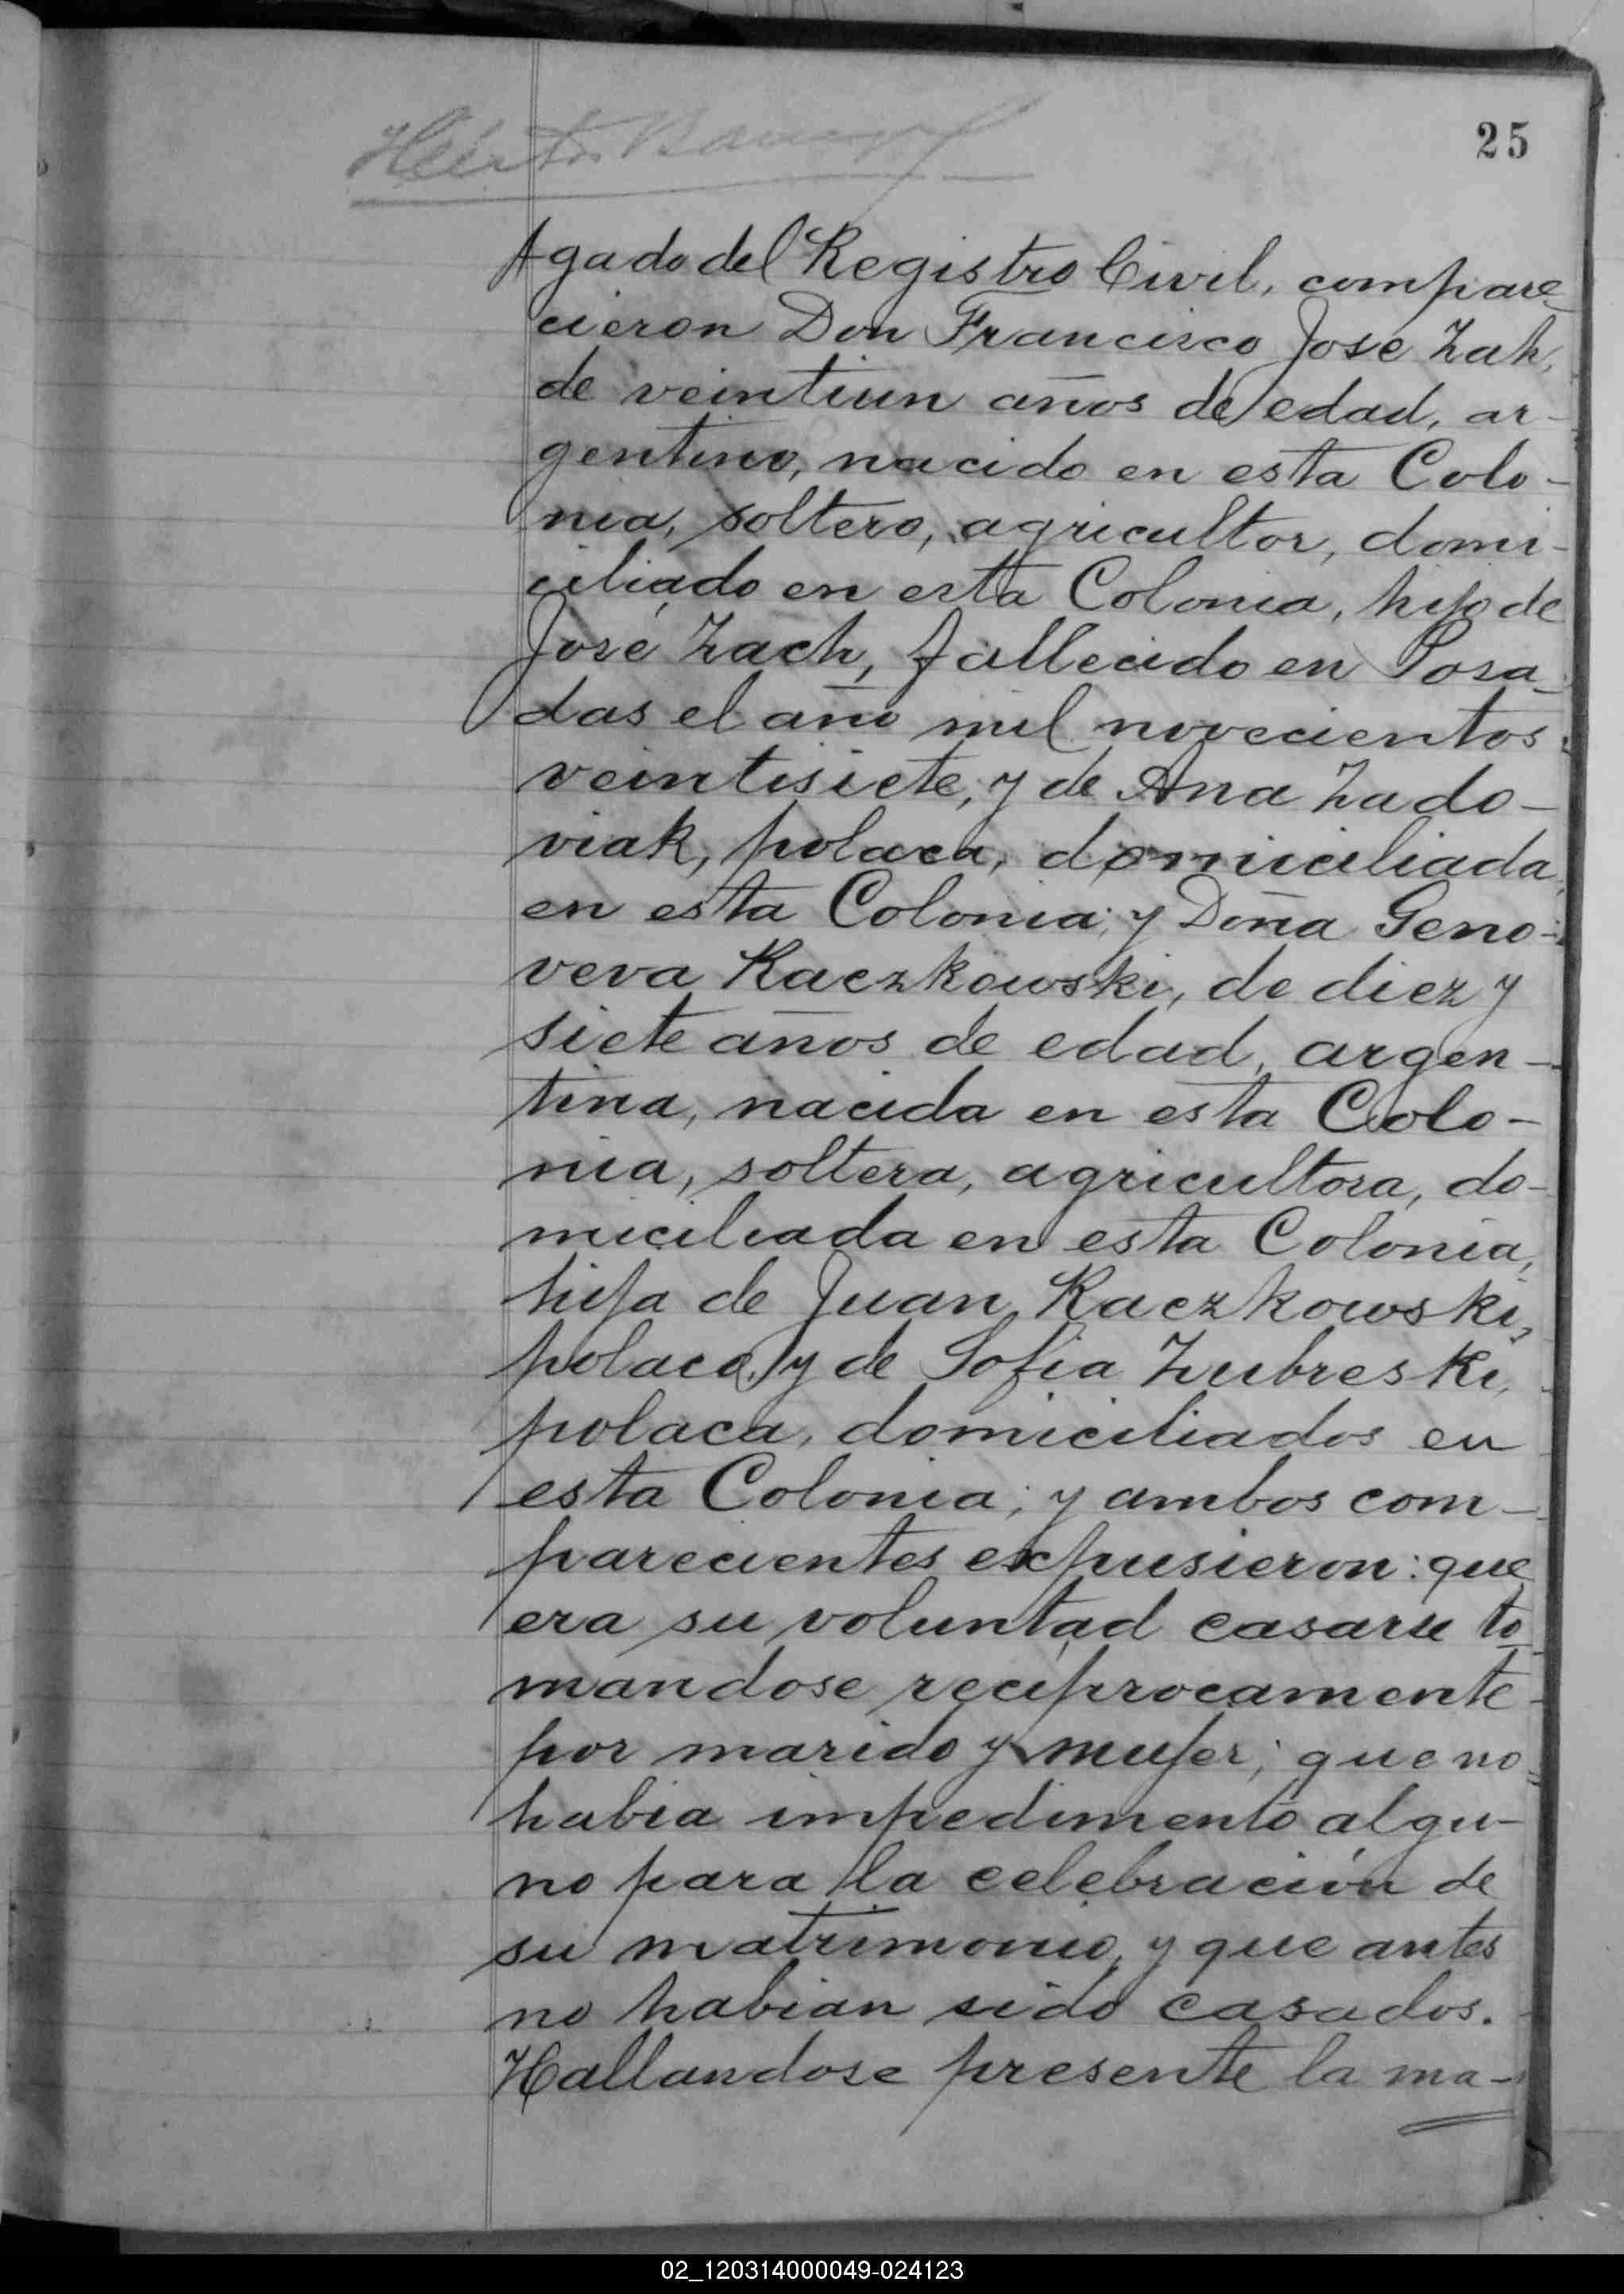 25
gado del Registro Civil, compare_
cieron Don Francisco José Zak,
de veintiun años de edad, ar-
gentino, nacido en esta Colo-
nia, soltero, agricultor, domi-
ciliado en esta Colonia, hijo de
José Zach, fallecido en Posa_
das el año mil novecientos
veintisiete, y de Ana Zado-
viak, polaca, domiciliada
en esta Colonia; y Doña Geno-
veva Kaczkowski, de diez y
siete años de edad, argen-
tina, nacida en esta Colo-
nia, soltera, agricultora, do-
miciliada en esta Colonia,
hija de Juan Kaczkowski,
polaco, y de Sofia Zubreski,
polaca, domiciliados en
esta Colonia; y ambos com-
parecientes expusieron: que
era su voluntad casarse to_
mandose reciprocamente
por marido y mujer; que no
habia impedimento algu-
no para la celebración de
su matrimonio, y que antes
no habian sido casados.
Hallandose presente la ma-
02_120314000049-024123